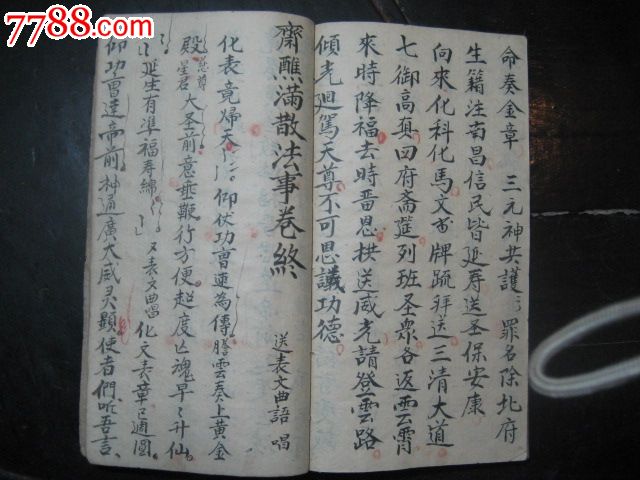 7788.com
命奏金章 三元神共護〻罪名除北府
生籍注南昌信民皆延寿送圣保安康
向來化科化馬文書牌疏拜送三清大道
七御高真回府斋筵列班圣衆各返雲霄
來時降福去時畨恩拱送威光請登雲路
傾光廻駕天尊不可思議功德
齋醮滿散法事卷終
送表文曲語 唱
化表竟歸天 仰伏功曹速為傳騰雲奏上黃金
殿 慈尊 星君 大圣前意垂鞭行方便超度亡魂早〻升仙
延生有準福寿綿 又表文曲唱 化文表章已週圓
仰功曹達帝前神通廣大威灵顯使者們听吾言